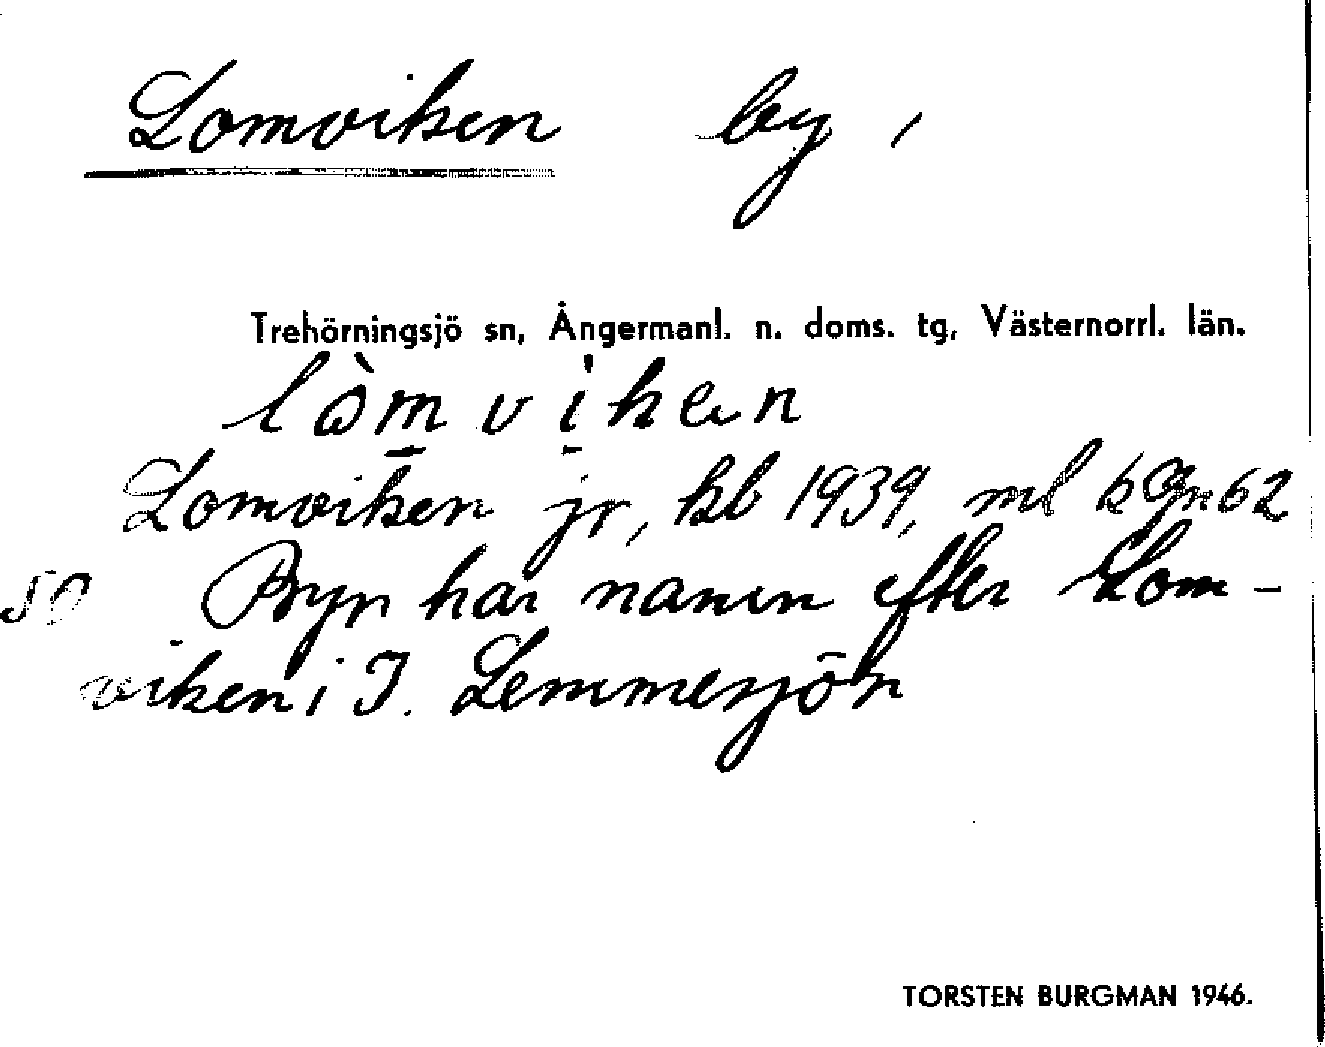 Lomviken by,
Trehörningsjö sn, Ångermanl. n. doms. tg, Västernorrl. län.
lòmviken
Lomviken jr, kb 1939, ml 62
50 Byn har namn efter Lom-
viken i I. Lemmesjön
TORSTEN BURGMAN 1946.